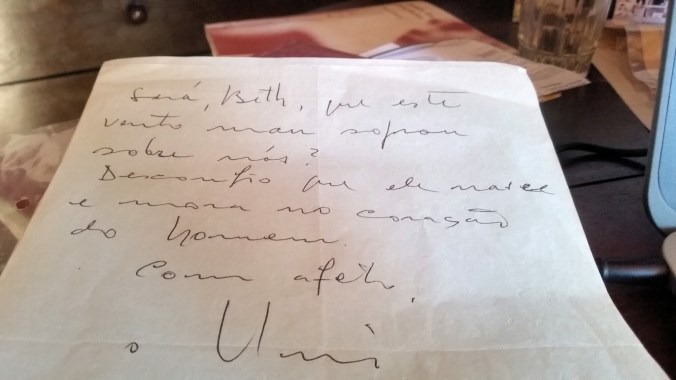 Será, Beth, que este
vento mau soprou
sobre nós?
Desconfio que ele nasce
e mora no coração
do homem.
Com afeto,
o Uni